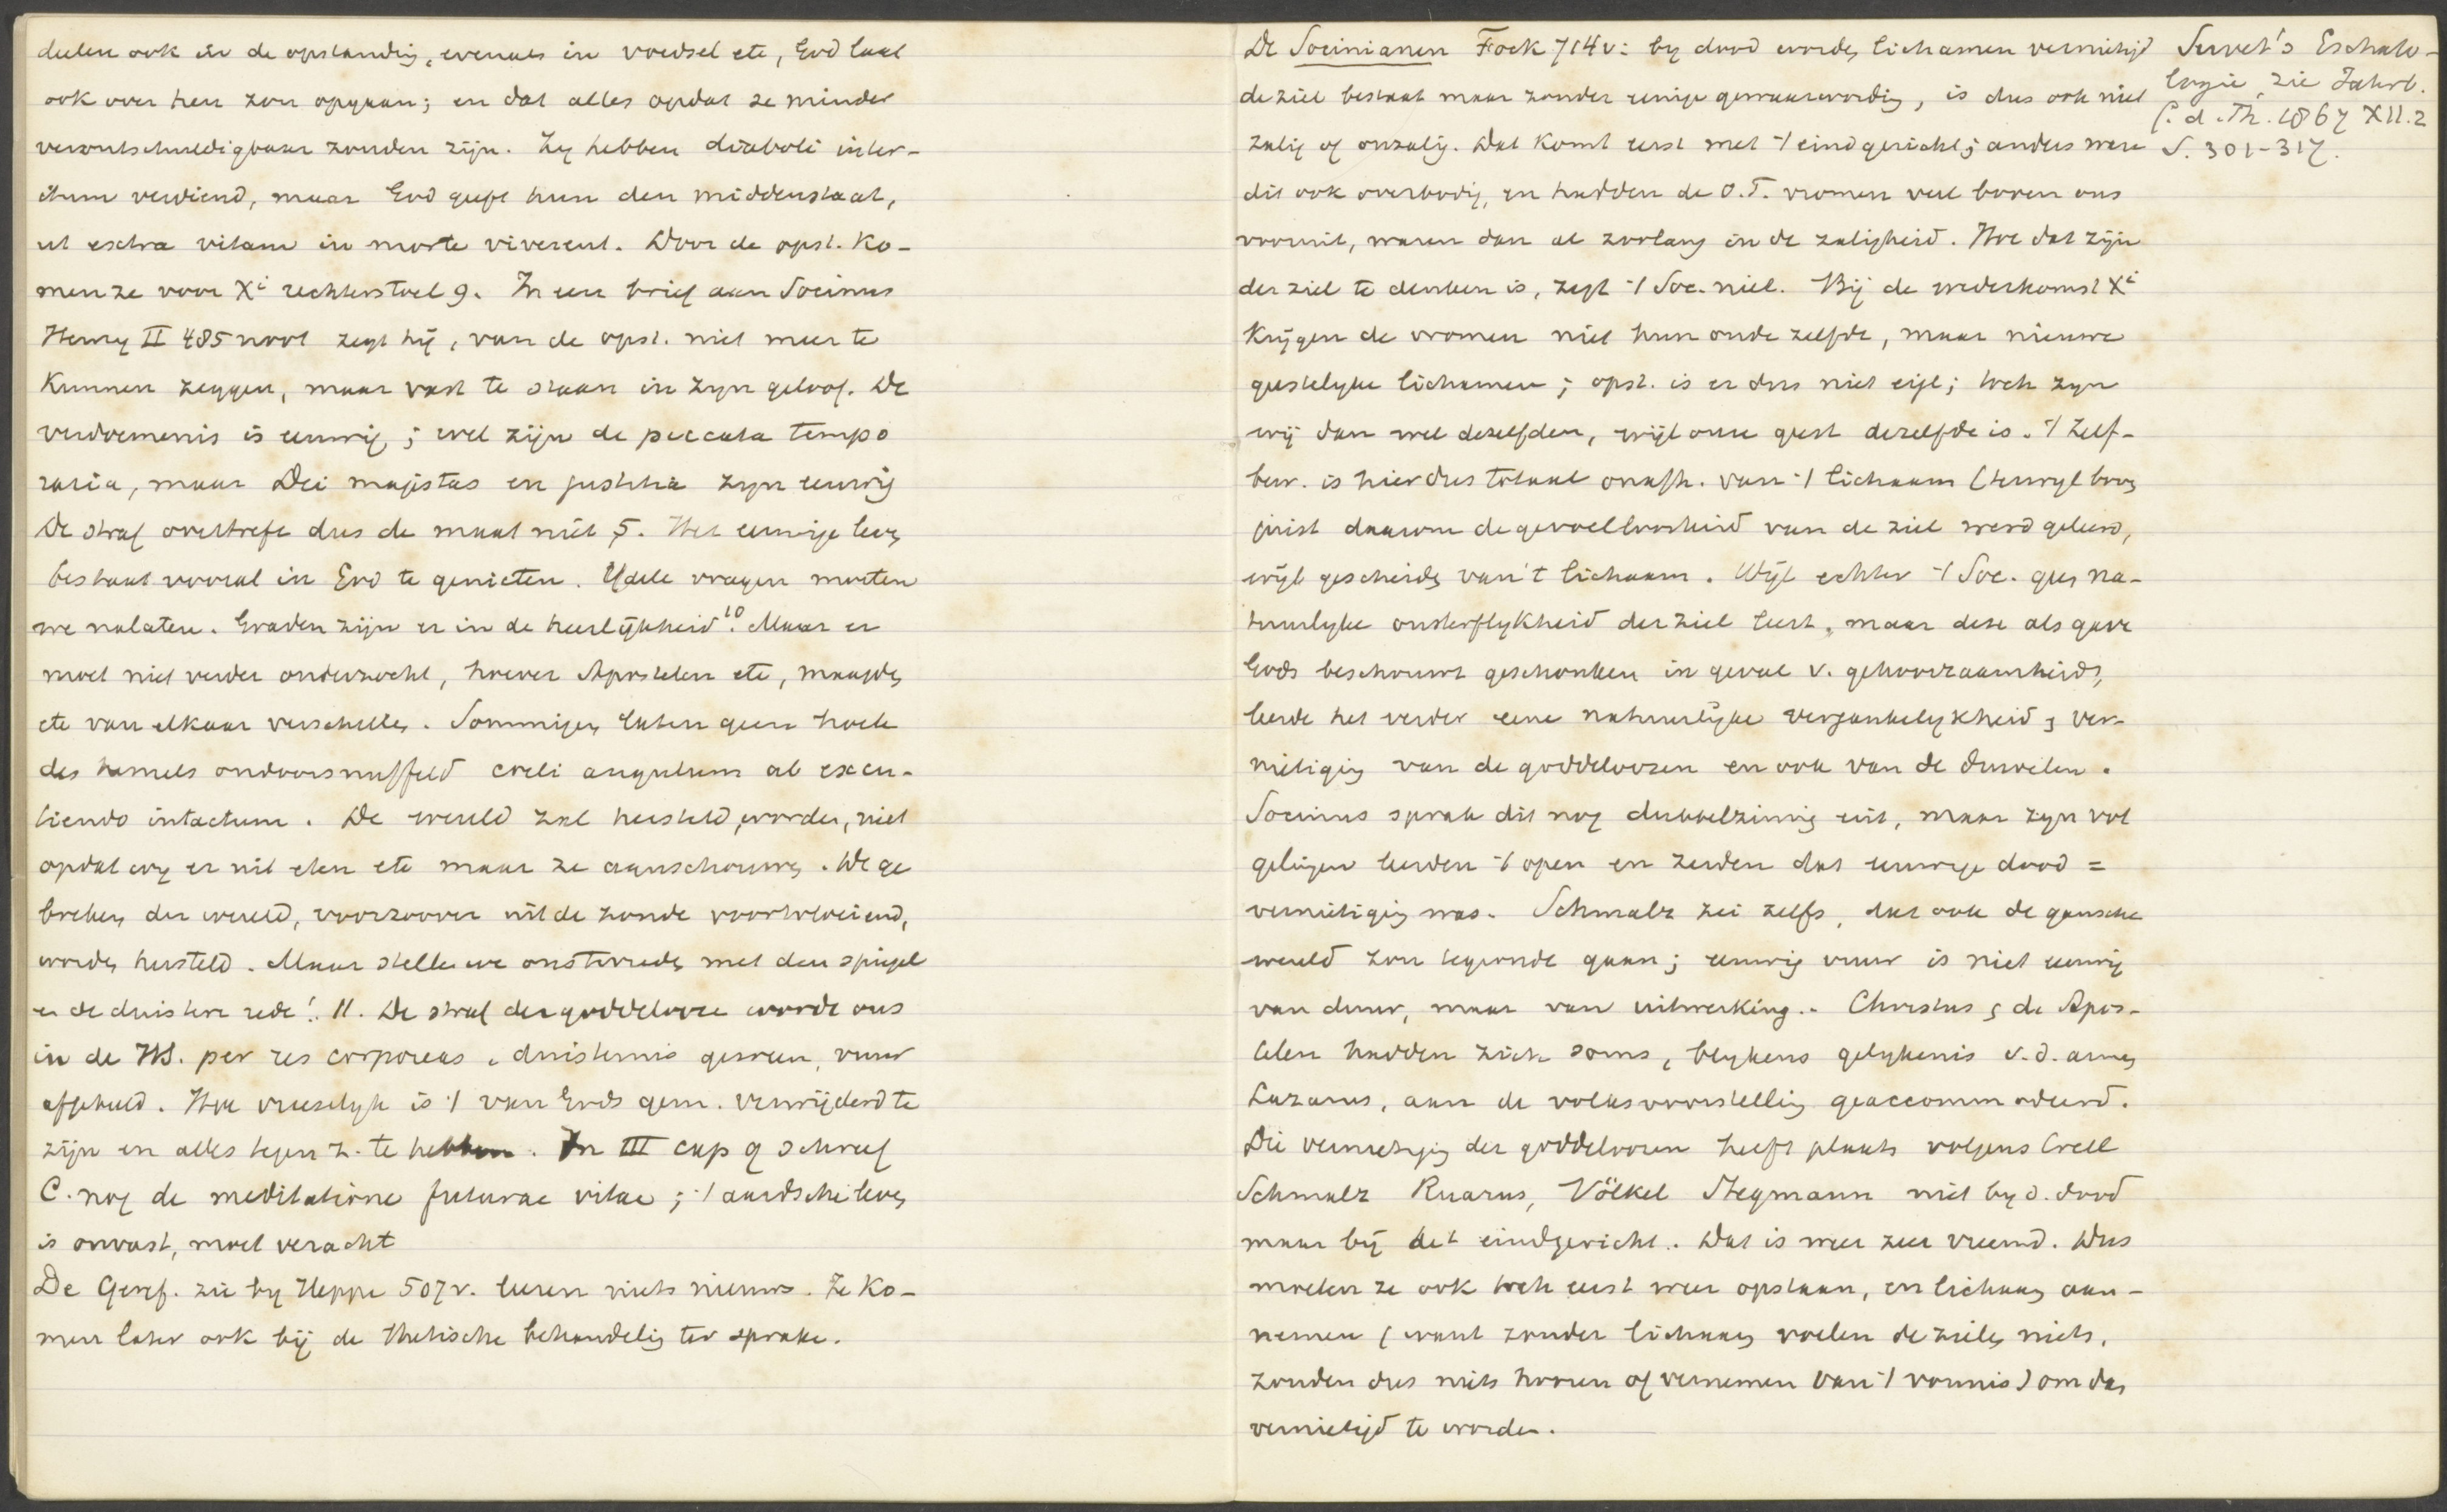 deelen ook in de opstanding, evenals in voedsel etc, God laat
ook over hen zon opgaan; en dat alles opdat ze minder
verontschuldigbaar zouden zijn. Zy hebben diaboli inter-
itum verdiend, maar God geeft hun den middenstaat,
ut extra vitam in morte viverent. Door de opst. ko-
men ze voor Xi rechterstoel 9. In een brief aan Socinus
Henry II 485 noot zegt hij, van de opst. niet meer te
kunnen zeggen, maar vast te staan in zyn geloof. De
verdoemenis is eeuwig; wel zijn de peccata tempo
raria, maar Dei majestas en justitia zyn eeuwig
De straf overtreft dus de maat niet 5. Het eeuwige leven
bestaat vooral in God te genieten. Ydele vragen moeten
we nalaten. Graden zijn er in de heerlijkheid 10. Maar er
moet niet verder onderzocht, hoever Apostelen etc, maagden
etc van elkaar verschillen. Sommigen laten geen hoek
des hemels ondoorsnuffeld coeli angulum ab excu-
tiendo intactum. De wereld zal hersteld worden, niet
opdat wy er uit eten etc maar ze aanschouwen. De ge
breken der wereld, voorzoover uit de zonde voortvloeiend,
worden hersteld. Maar stellen we ons tevreden met den spiegel
en de duistere rede! 11. De straf der goddeloze wordt ons
in de HS. per res corporeas, duisternis geween, vuur
afgebeeld. Hoe vreeselyk is 't van Gods gem. verwijderd te
zijn en alles tegen z. te hebben. In III cap 9 schreef
C. nog de meditatione futurae vitae; 't aardsche leven
is onvast, moet veracht
De Geref. zie by Heppe 507v. leeren niets nieuws. Ze ko-
men later ook bij de thetische behandeling ter sprake.
De Socinianen Fock 714v: by dood worden lichamen vernietigd
de ziel bestaat maar zonder eenige gewaarwording, is dus ook niet
zalig of onzalig. Dat komt eerst met 't eindgericht; anders ware
dit ook overbodig, en hadden de O.T. vromen veel boven ons
vooruit, waren dan al zoolang in de zaligheid. Hoe dat zijn
der ziel te denken is, zegt 't Soc. niet. Bij de wederkomst Xi
krijgen de vromen niet hun oude zelfde, maar nieuwe
geestelyke lichamen; opst. is er dus niet eigl; toch zyn
wij dan wel dezelfden, wijl onze geest dezelfde is. 't Zelf-
bew. is hier dus totaal onafh. van 't lichaam (terwyl boven
juist daarom de gevoelloosheid van de ziel werd geleerd,
wijl gescheiden van 't lichaam. Wijl echter 't Soc. geen na-
tuurlyke onsterflykheid der ziel leert, maar deze als gave
Gods beschouwt geschonken in geval v. gehoorzaamheid,
leerde het verder eene natuurlijke vergankelykheid, ver-
nietiging van de goddeloozen en ook van de duivelen.
Socinus sprak dit nog dubbelzinnig uit, maar zyn vol
gelingen leerden 't open en zeiden dat eeuwige dood =
vernietiging was. Schmalz zei zelfs, dat ook de gansche
wereld zou tegronde gaan; eeuwig vuur is niet eeuwig
van duur, maar van uitwerking.. Christus, de Apos-
telen hadden zich soms, blykens gelykenis v.d. armen
Lazarus, aan de volksvoorstelling geaccommodeerd.
Die vernietiging der goddeloozen heeft plaats volgens Crell
Schmalz Ruarus, Völkel Stegmann niet by d. dood
maar bij het eindgericht. Dat is weer zeer vreemd. Dus
moeten ze ook toch eerst weer opstaan, en lichaam aan-
nemen (want zonder lichaam voelen de zielen niets,
zouden dus niets hooren of vernemen van 't vonnis) om dan
vernietigd te worden.
Servet's Eschato-
logie, zie Jahrb.
f. d. Th. 1867 XII.2
S. 301-317.